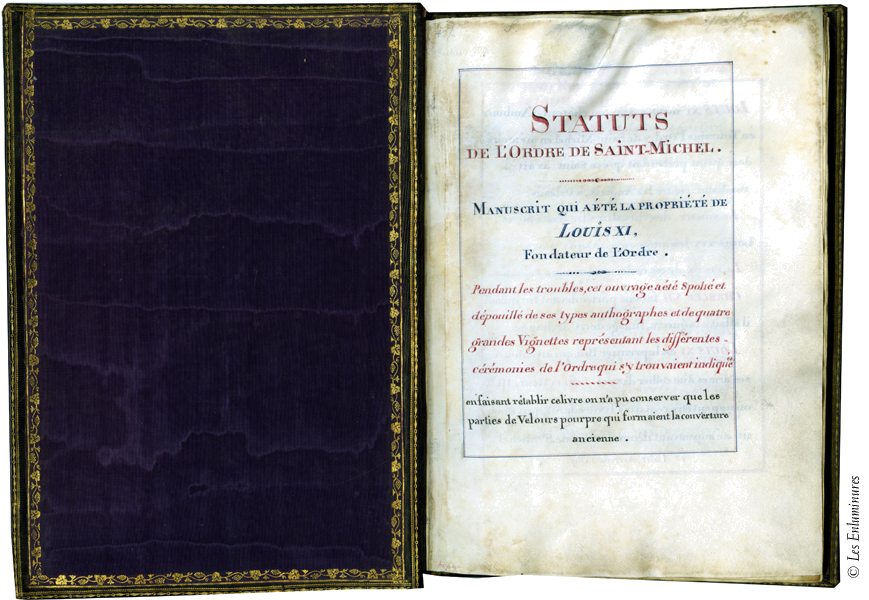 STATUTS
DE L'ORDRE DE SAINT-MICHEL.
MANUSCRIT QUI A ÉTÉ LA PROPRIÉTÉ DE
LOUIS XI,
Fondateur de L'Ordre.
Pendant les troubles, cet ouvrage a été Spolié et
dépouillé de ses types authographes et de quatre
grandes Vignettes représentant les différentes
cérémonies de l'Ordre qui s'y trouvaient indiqués
en faisant rétablir ce livre on n'a pu conserver que les
parties de Velours pourpre qui formaient la couverture
ancienne.
© Les Enluminures